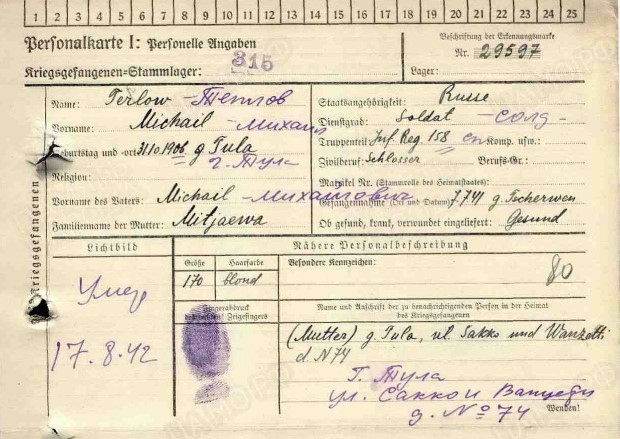 1 2 3 4 5 6 7 8 9 10 11 12 13 14 15 16 17 18 19 20 21 22 23 24 25
Personalkarte I: Personelle Angaben
Kriegsgefangenen-Stammlager: 315
Beschriftung der Erkennungsmarke
Nr. 29597
Lager:
Name: Terlow - Теплов
Vorname: Michail - Михаил
Geburtstag und -ort: 31.10.1906 g Tula
г. Тула
Religion:
Vorname des Vaters: Michail - Михайлович
Familienname der Mutter: Mitjaewa
Staatsangehörigkeit: Russe
Dienstgrad: Soldat - солд -
Truppenteil: Inf Reg. 158 Komp. usw.:
Zivilberuf: Schlosser Berufs-Gr.:
Matrikel Nr. (Stammrolle des Heimatstaates):
Gefangennahme (Ort und Datum): 7.7.41 g. Tscherwen
Ob gesund, krank, verwundet eingeliefert: Gesund
Des Kriegsgefangenen
Lichtbild
Умер
17.8.42
Nähere Personalbeschreibung
Größe Haarfarbe Besondere Kennzeichen:
170 blond
80
Fingerabdruck
des rechten! Zeigefingers
Name und Anschrift der zu benachrichtigenden Person in der Heimat
des Kriegsgefangenen
(Mutter) g. Tula, ul. Sakko und Wanzetti
d N 74
г. Тула
ул. Сакко и Ванцети
д. № 74
Wenden!